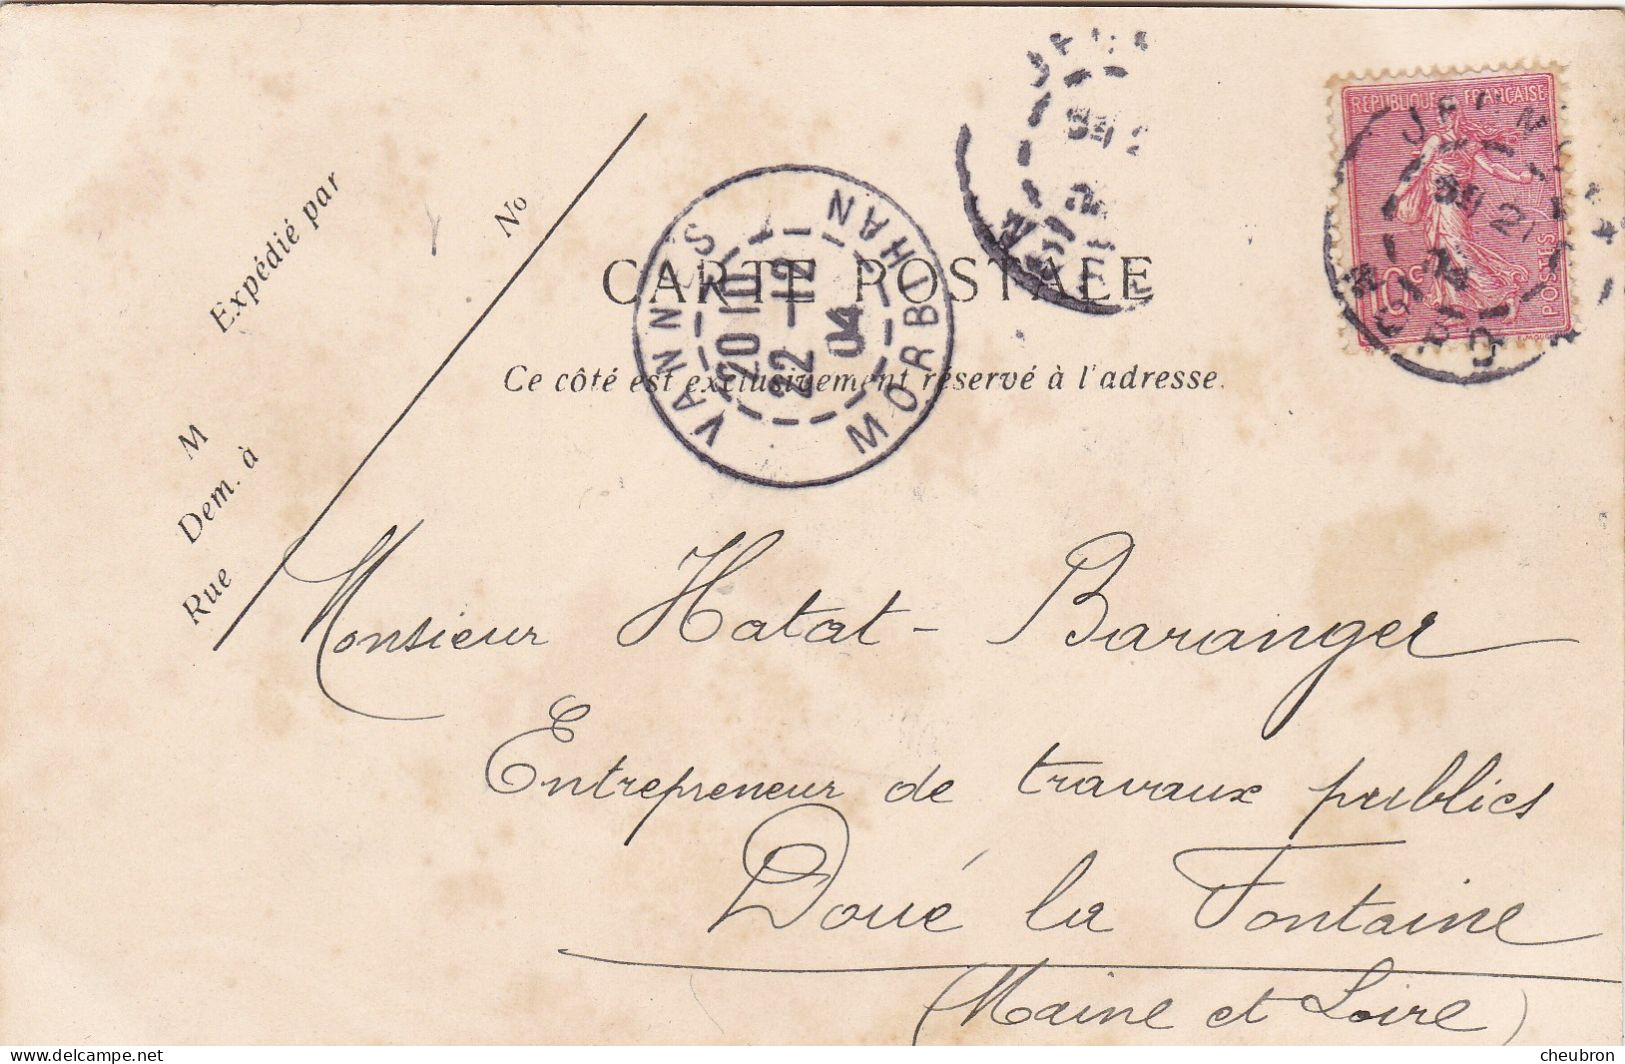 RÉPUBLIQUE FRANÇAISE
POSTES
10c
Expédié par
No
M
Dem. à
Rue
CARTE POSTALE
Ce côté est exclusivement réservé à l'adresse.
VANNES
20 10
22 - 12
04
MORBIHAN
Monsieur Hatat - Baranger
Entrepreneur de travaux publics
Doué la Fontaine
(Maine et Loire)
delcampe.net
cheubron